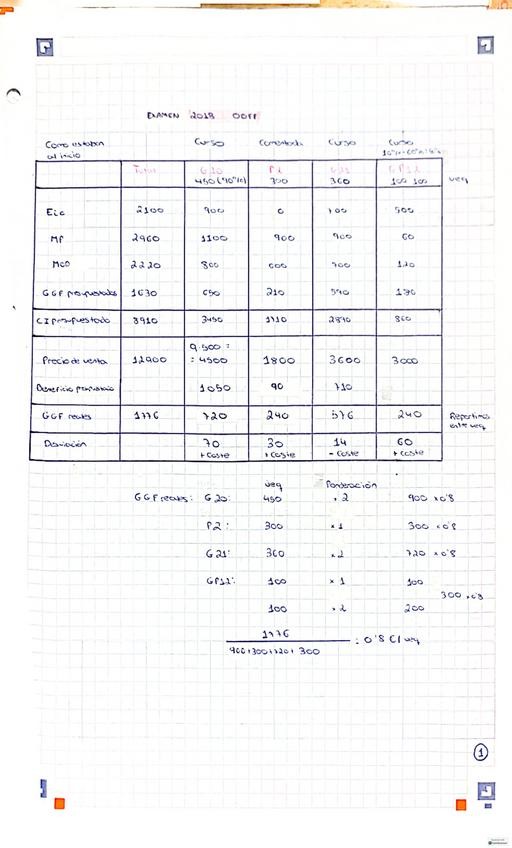 EXAMEN 2018 OOFF
Como estaban al inicio
Curso Comentada Curso Curso
Total G20 P2 G21 GP12
450 (90%) 300 360 100 100 ueq
EIC 2100 900 0 700 500
MP 2960 1100 900 900 60
MOD 2220 800 600 700 120
GGF presupuestados 1630 650 210 590 180
CI presupuestado 8910 3450 1710 2890 860
9.500 =
Precio de venta 12900 = 4500 1800 3600 3000
Beneficio 1050 90 710
GGF reales 1776 720 240 576 240 Repartimos entre ueq
Desviación 70 30 14 60
+ coste + coste - coste + coste
ueq Ponderación
GGF reales: G20: 450 × 2 900 × 0'8
P2: 300 × 1 300 × 0'8
G21: 360 × 2 720 × 0'8
GP12: 100 × 1 100
300 × 0'8
100 × 2 200
1776
900+300+720+300 = 0'8 €/ueq
1